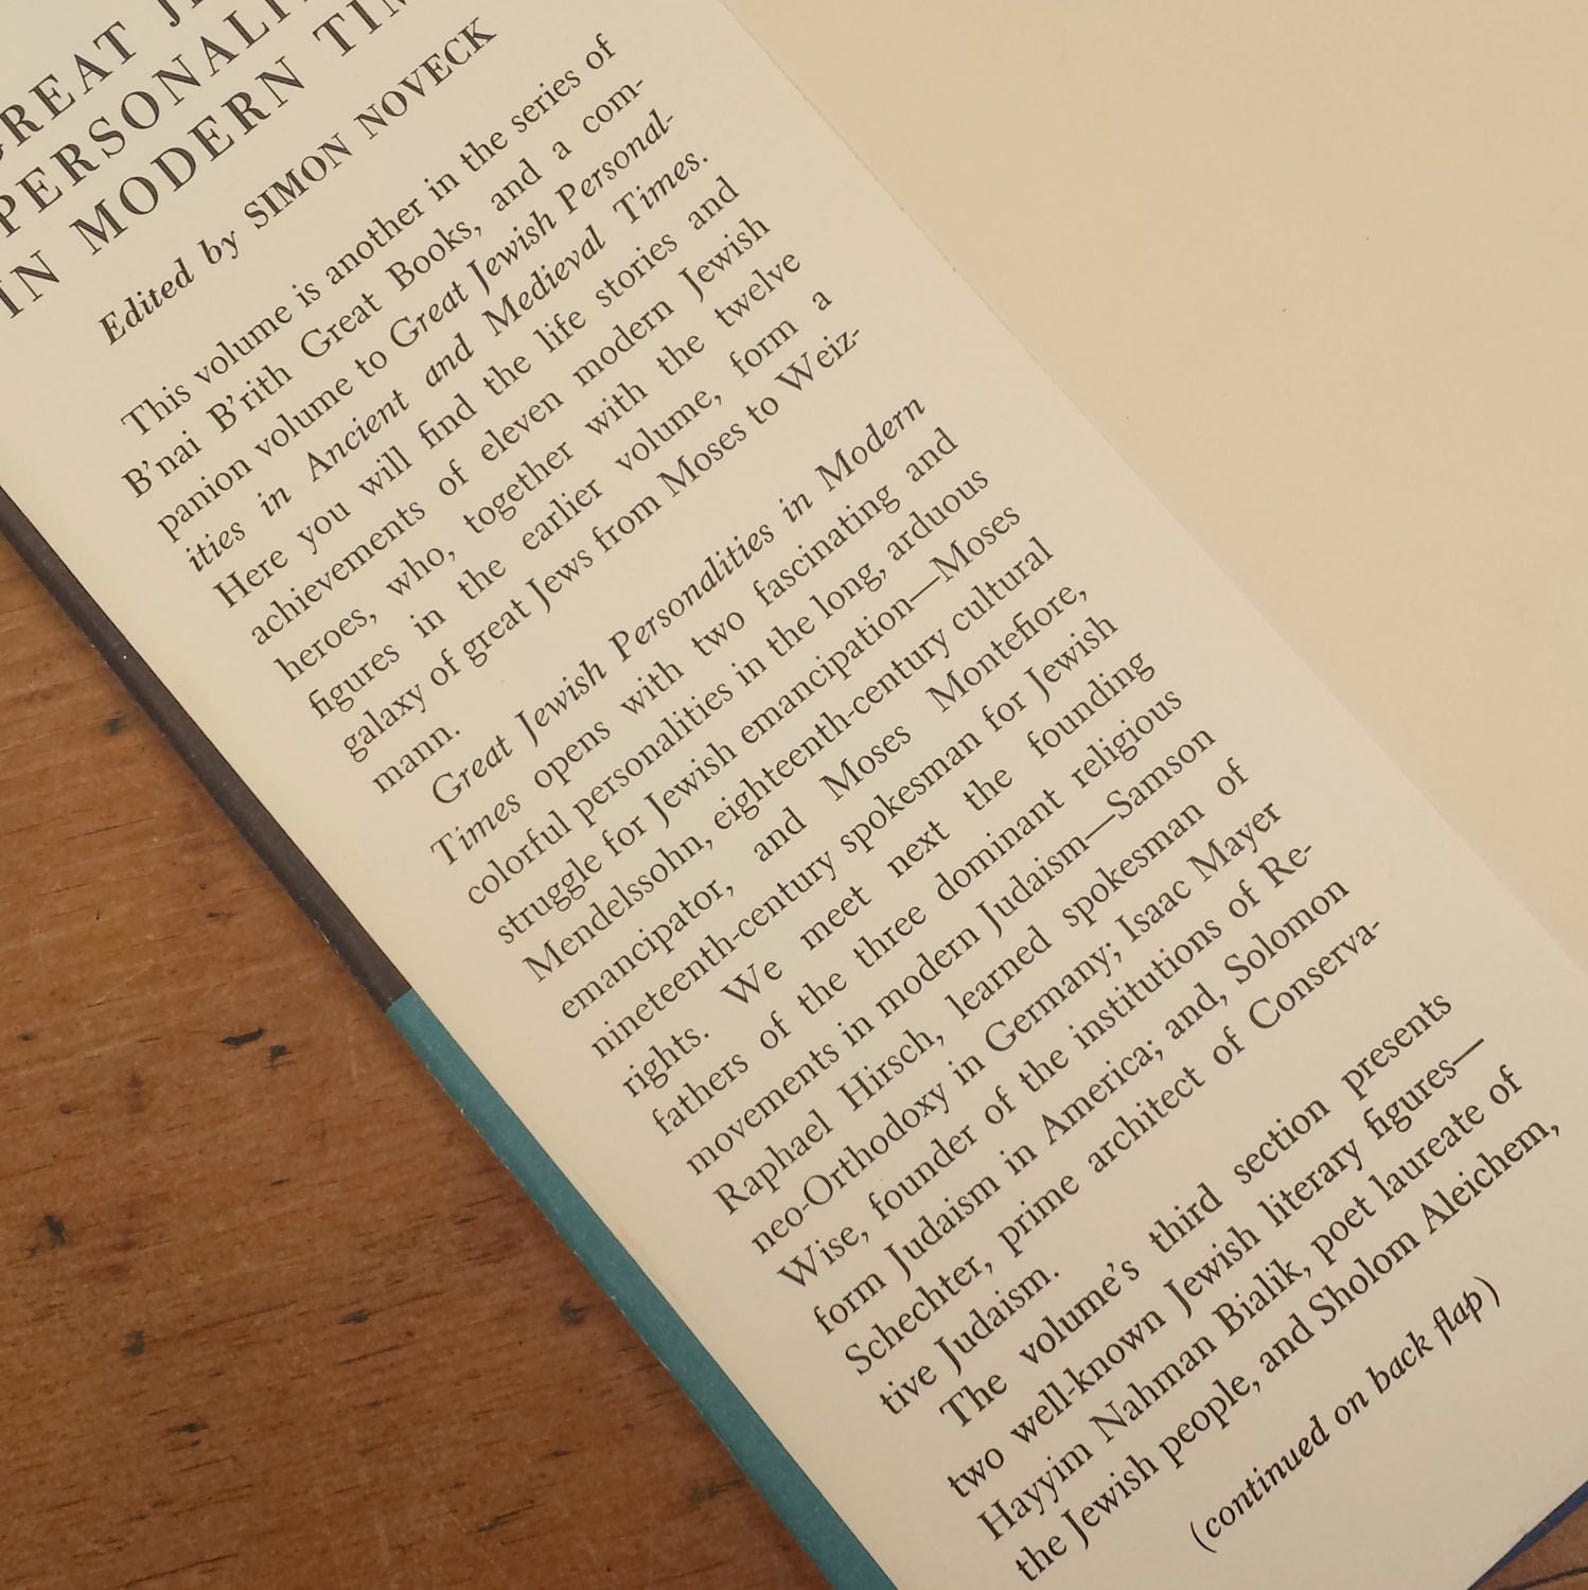 GREAT
PERSONALI
IN MODERN TIM
Edited by SIMON NOVECK
This volume is another in the series of
B'nai B'rith Great Books, and a com-
panion volume to Great Jewish Personal-
ities in Ancient and Medieval Times.
Here you will find the life stories and
achievements of eleven modern Jewish
heroes, who, together with the twelve
figures in the earlier volume, form a
galaxy of great Jews from Moses to Weiz-
mann.
Great Jewish Personalities in Modern
Times opens with two fascinating and
colorful personalities in the long, arduous
struggle for Jewish emancipation—Moses
Mendelssohn, eighteenth-century cultural
emancipator, and Moses Montefiore,
nineteenth-century spokesman for Jewish
rights. We meet next the founding
fathers of the three dominant religious
movements in modern Judaism—Samson
Raphael Hirsch, learned spokesman of
neo-Orthodoxy in Germany; Isaac Mayer
Wise, founder of the institutions of Re-
form Judaism in America; and, Solomon
Schechter, prime architect of Conserva-
tive Judaism.
The volume's third section presents
two well-known Jewish literary figures—
Hayyim Nahman Bialik, poet laureate of
the Jewish people, and Sholom Aleichem,
(continued on back flap)